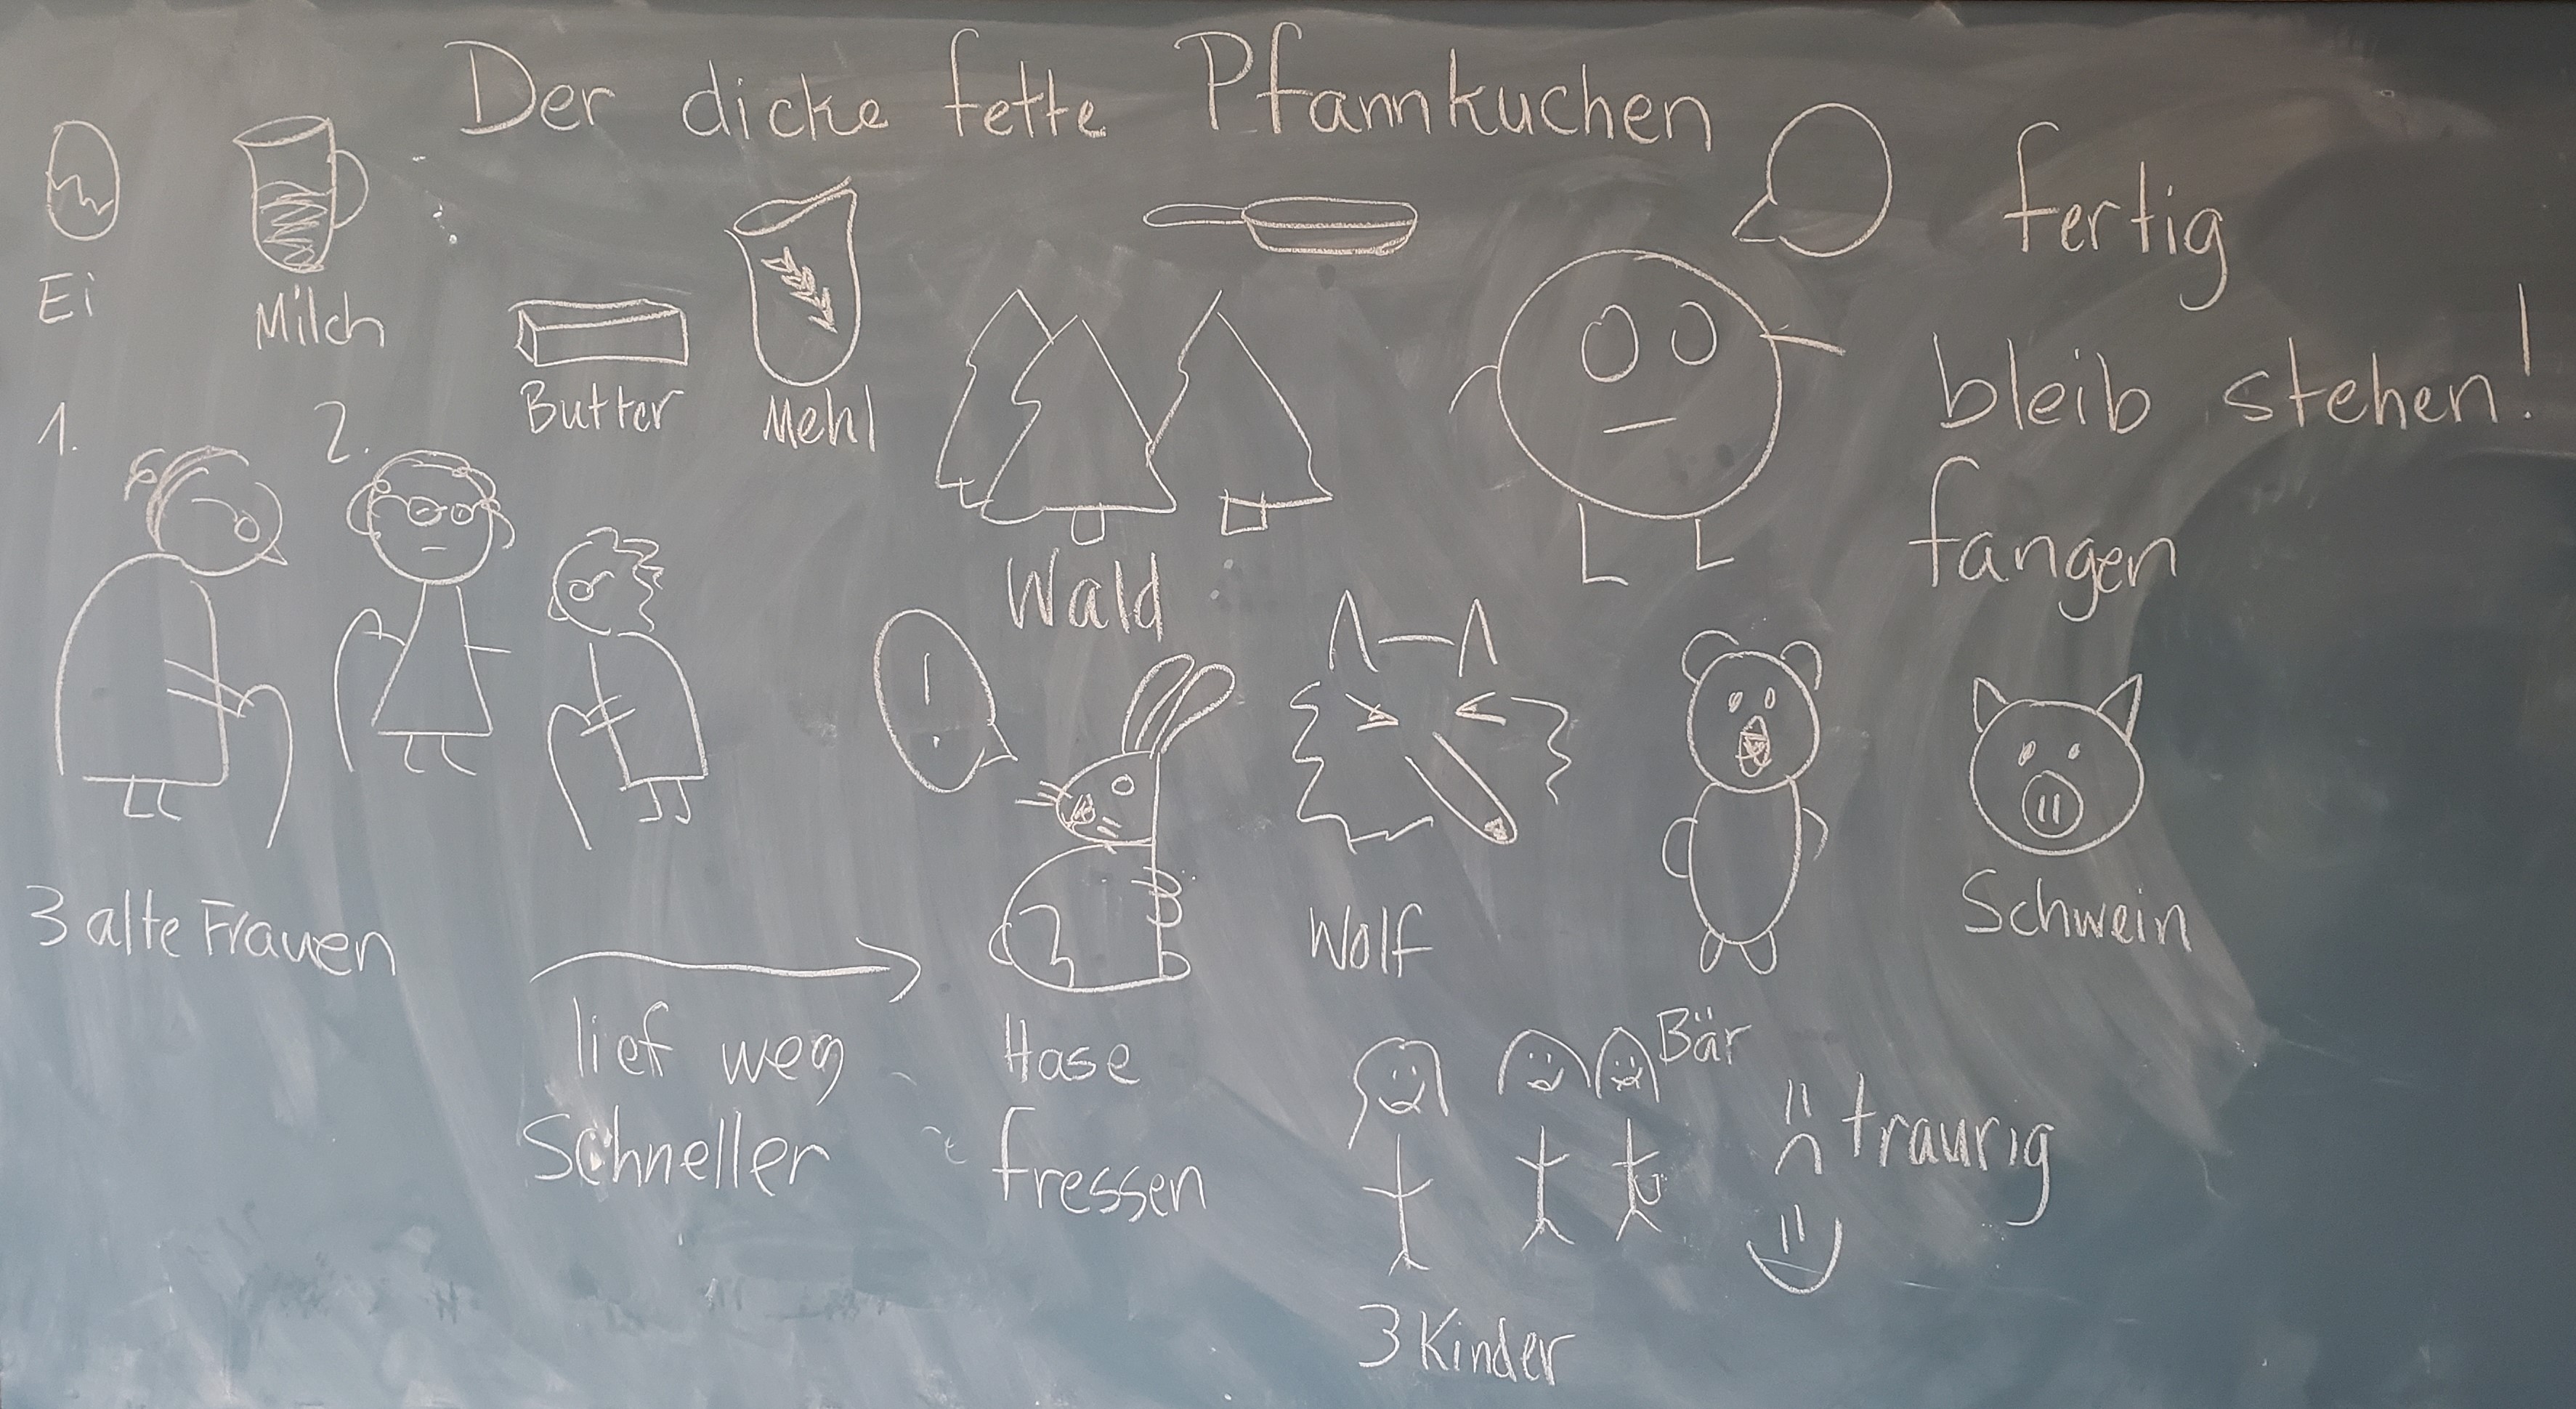 Der dicke fette Pfannkuchen
Ei
Milch
Butter
Mehl
fertig
bleib stehen!
fangen
1.
2.
Wald
!
3 alte Frauen
lief weg
Schneller
Hase
fressen
Wolf
Bär
Schwein
traurig
3 Kinder